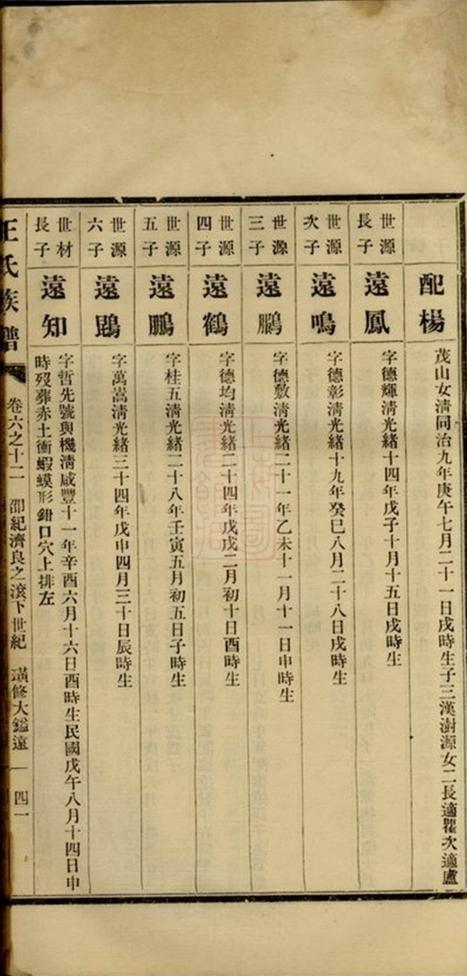 配楊
茂山女清同治九年庚午七月二十一日戌時生子三漢澍源女二長適瞿次適盧
世源長子
遠鳳
字德輝清光緒十四年戊子十月十五日戌時生
世源次子
遠鳴
字德彰清光緒十九年癸巳八月二十八日戌時生
世源三子
遠鵬
字德敷清光緒二十一年乙未十一月十一日申時生
世源四子
遠鶴
字德均清光緒二十四年戊戌二月初十日酉時生
世源五子
遠鵬
字桂五清光緒二十八年壬寅五月初五日子時生
世源六子
遠鷗
字萬嵩清光緒三十四年戊申四月三十日辰時生
世材長子
遠知
字哲先號與機清咸豐十一年辛酉六月十六日酉時生民國戊午八月十四日申
時歿葬赤土衝蝦蟆形鉗口穴上排左
王氏族譜
卷六之十二
卲紀濟良之滾下世紀
瑛修大鎰遠
四一